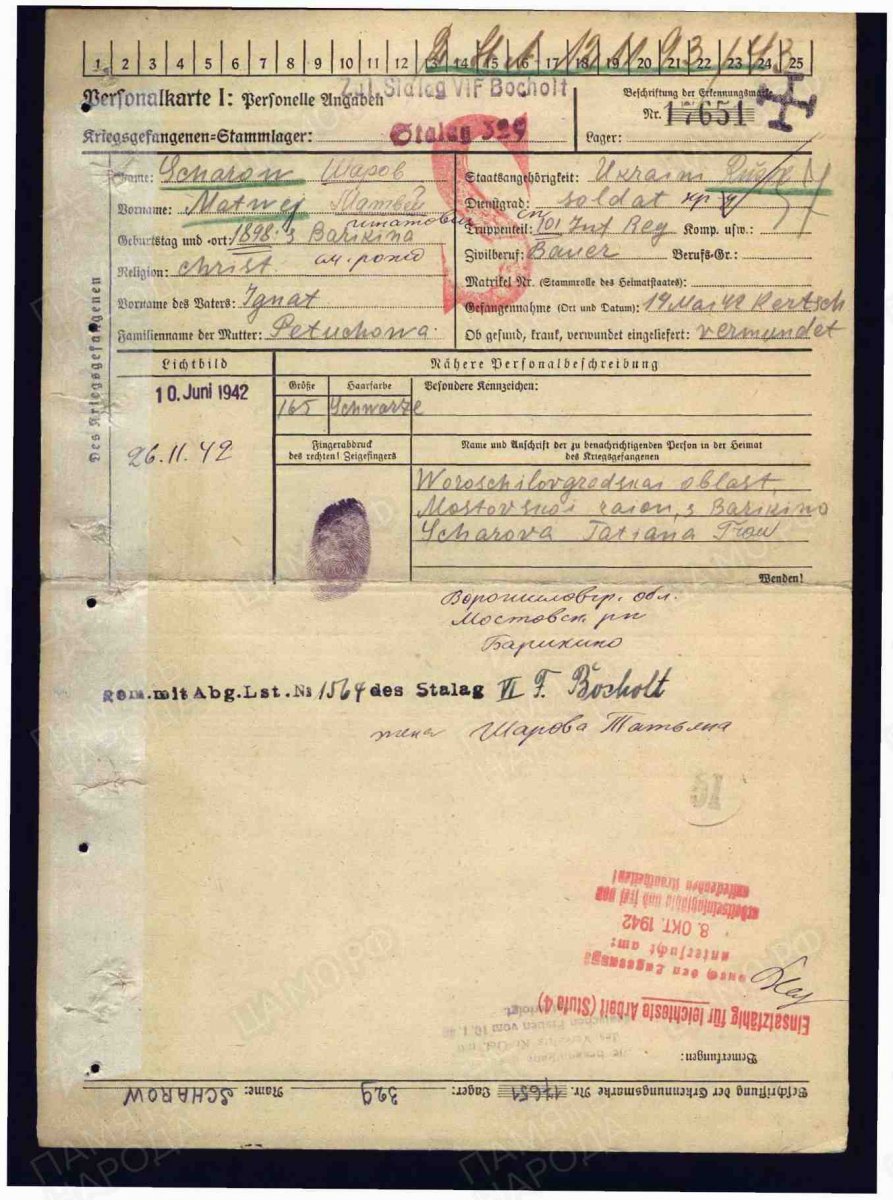 1 2 3 4 5 6 7 8 9 10 11 12 13 14 15 16 17 18 19 20 21 22 23 24 25
Personalkarte I: Personelle Angaben
Stalag VI F Bocholt
Beschriftung der Erkennungsmarke
Nr. 17651
Kriegsgefangenen=Stammlager: Stalag 329
Lager:
Des Kriegsgefangenen
S
Name: Scharow Шаров
Vorname: Matwej Матвей
Игнатович
Geburtstag und =ort: 1898 s Barikina
Religion: christ.
Vorname des Vaters: Ignat
Familienname der Mutter: Petuchowa
Staatsangehörigkeit: Ukraini
Dienstgrad: soldat кр
Truppenteil: 101 Inf Reg Komp. usw.:
Zivilberuf: Bauer Berufs=Gr.:
Matrikel Nr. (Stammrolle des Heimatstaates):
Gefangennahme (Ort und Datum): 19 Mai 42 Kertsch
Ob gesund, krank, verwundet eingeliefert: verwundet
Lichtbild
10. Juni 1942
26.11.42
Nähere Personalbeschreibung
Größe Haarfarbe Besondere Kennzeichen:
165 Schwarze
Fingerabdruck
des rechten! Zeigefingers
Name und Anschrift der zu benachrichtigenden Person in der Heimat
des Kriegsgefangenen
Woroschilovgredskai oblast,
Mostovskoi raion, s Barikino
Scharova Tatiana Frau
Wenden!
Ворошиловгр. обл.
Мостовск. рн
Барикино
gem. mit Abg. Lst. № 1564 des Stalag VI F. Bocholt
жена Шарова Татьяна
16
Beschriftung der Erkennungsmarke Nr. 17651 Lager: 329 Name: SCHAROW
Bemerkungen:
Einsatzfähig für leichteste Arbeit (Stufe 4)
untersucht am:
8. OKT. 1942
arbeitseinsatzfähig und frei von
ansteckenden Krankheiten!
ПАМЯТЬ НАРОДА
ЦАМО.РФ